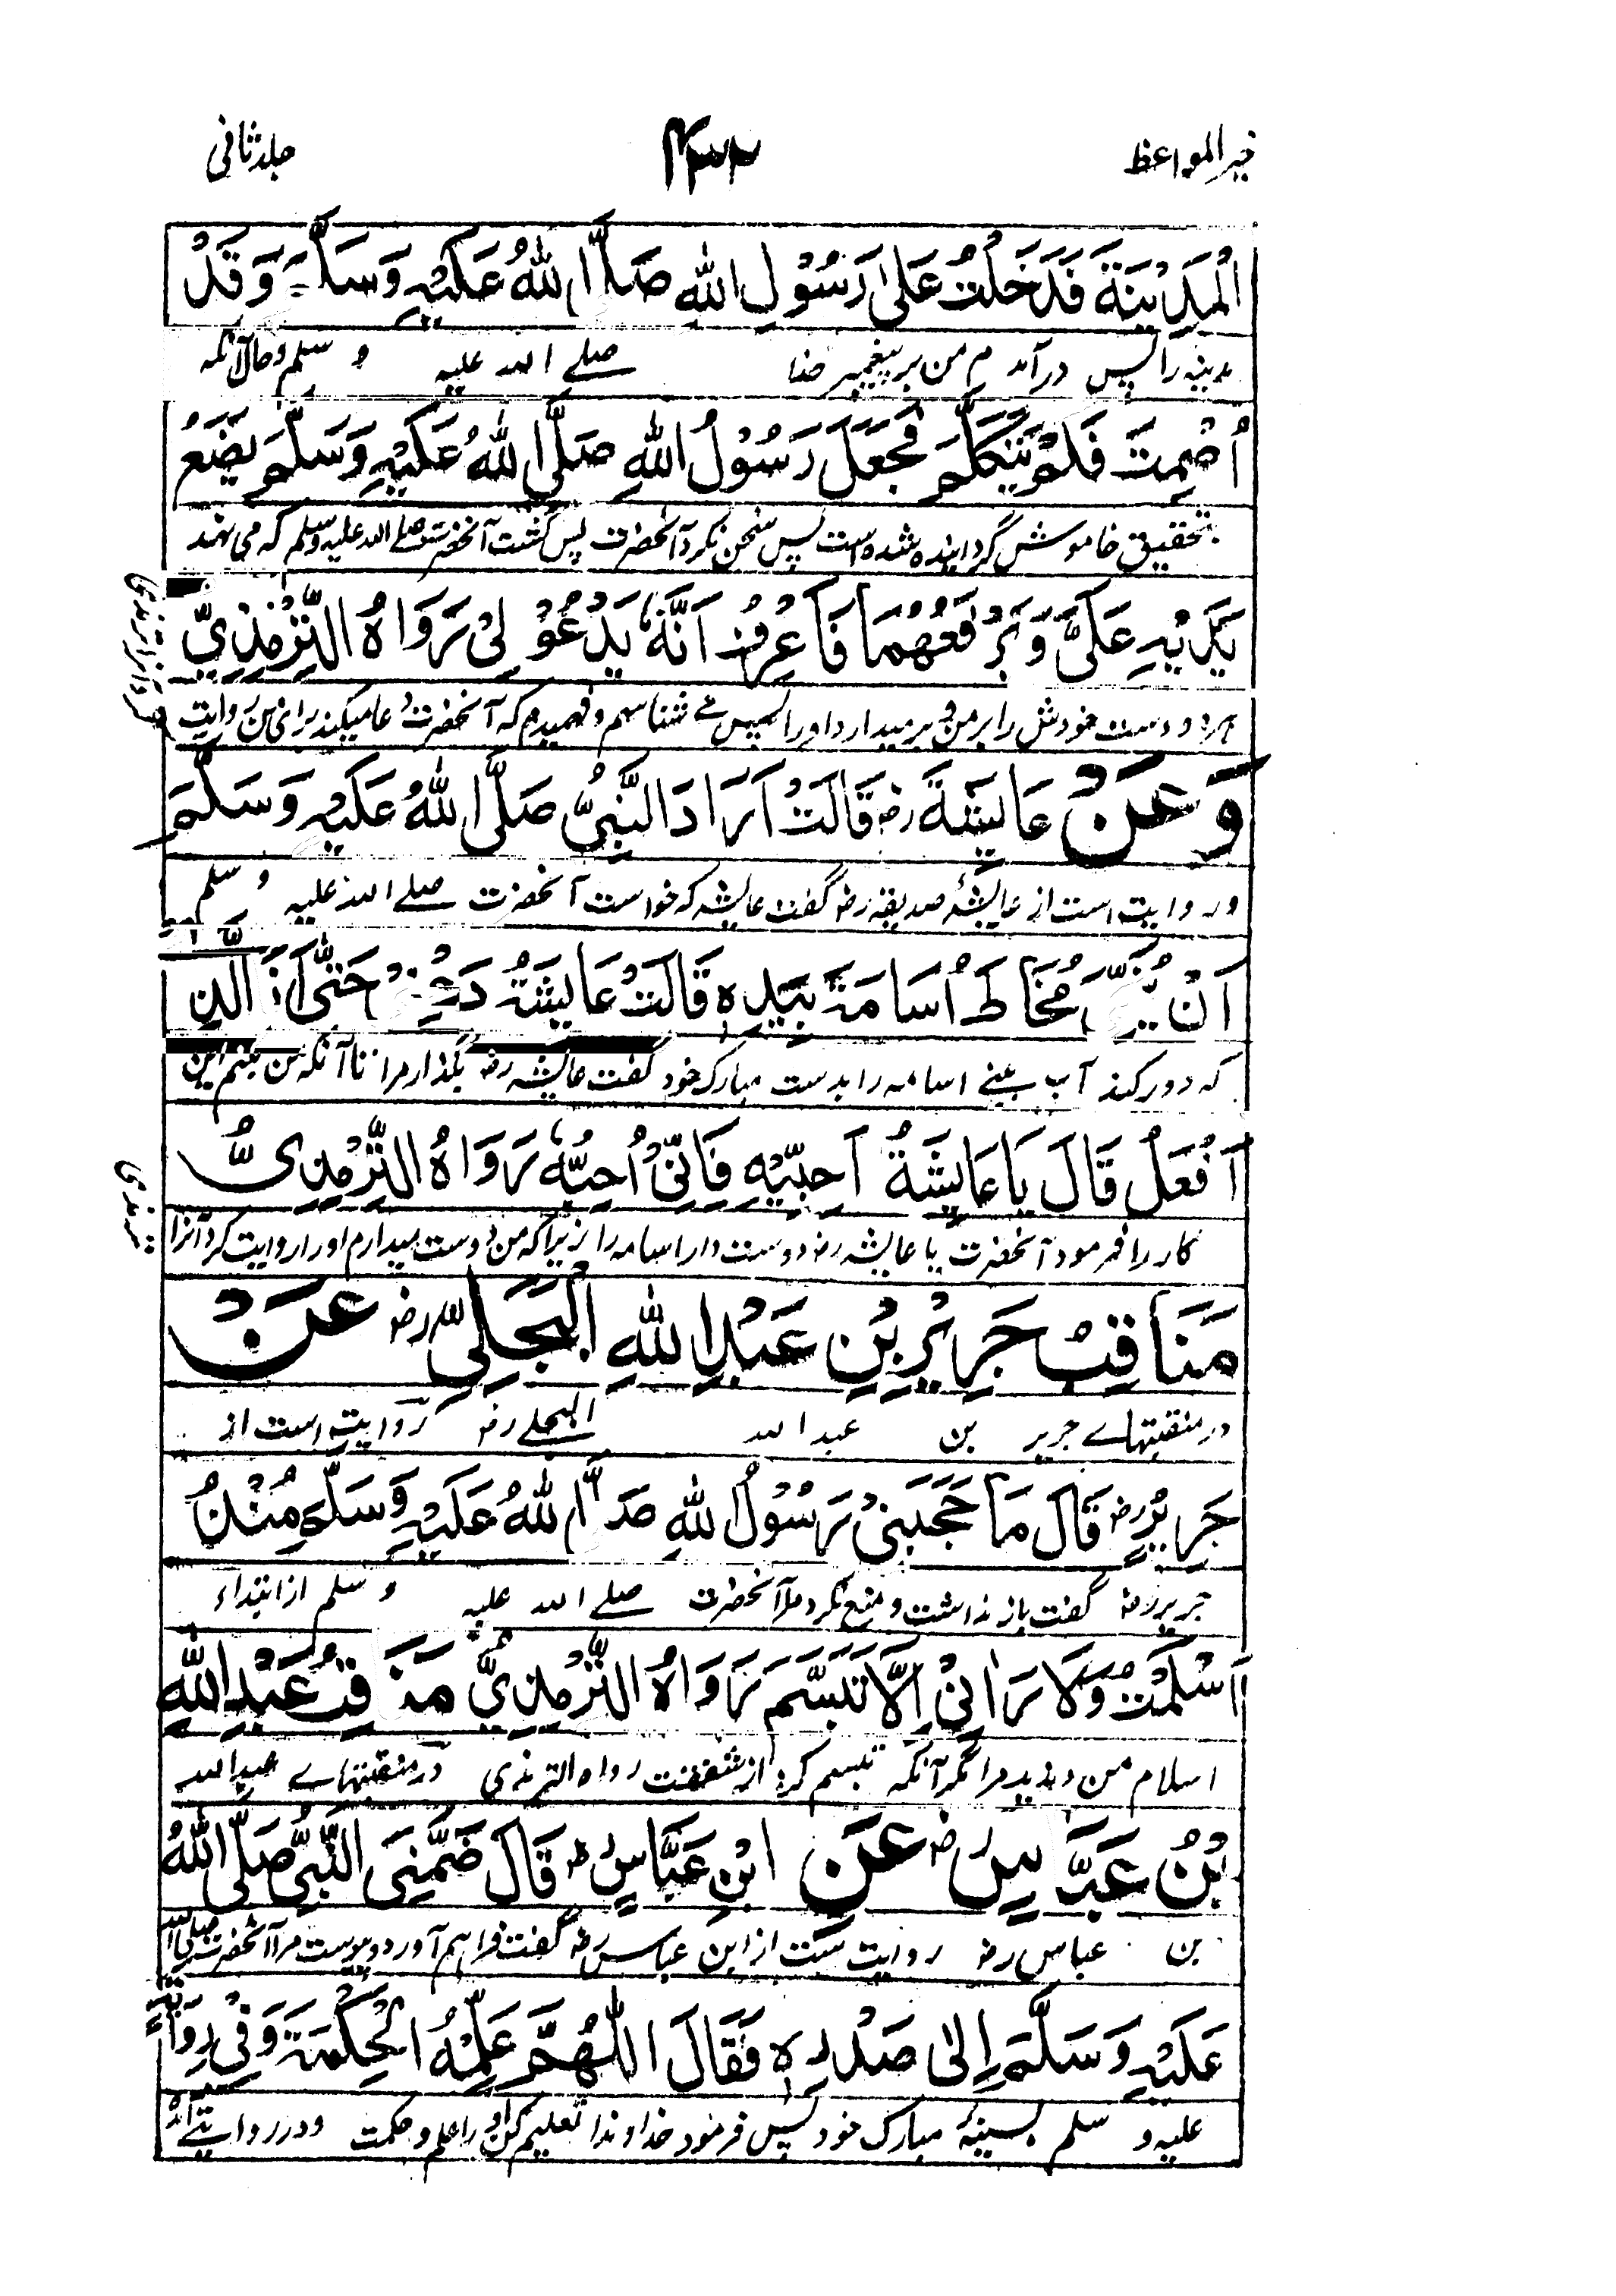 خیر المواعظ
۴۳۲
جلد ثانی
الْمَدِيْنَةَ فَدَخَلْتُ عَلىٰ رَسُوْلِ اللهِ صَلَّى اللهُ عَلَيْهِ وَسَلَّمَ وَقَدْ
مدینه را پس در آمدم من بر پیغمبر خدا صلے الله علیه و سلم و حال آنکه
اُصْمِتَ فَلَمْ يَتَكَلَّمْ فَجَعَلَ رَسُوْلُ اللهِ صَلَّى اللهُ عَلَيْهِ وَسَلَّمَ يَضَعُ
بتحقیق خاموش گردانیده شده است پس سخن نکرد آنحضرت پس گشت آنحضرت صلے الله علیه وسلم که می نهند
يَدَيْهِ عَلَىَّ وَيَرْفَعُهُمَا فَاَعْرِفُ اَنَّهٗ يَدْعُوْ لِىْ رَوَاهُ التِّرْمِذِيُّ
هر دو دست خودش را بر من و بر میدارد اورا پس مے شناسم و فهمیدم که آنحضرت دعا میکند برای من روایت
کرد آنرا ترمذی
وَعَنْ عَايِشَةَ رض قَالَتْ اَرَادَ النَّبِىُّ صَلَّى اللهُ عَلَيْهِ وَسَلَّمَ
و روایت است از عایشهٔ صدیقه رض گفت عایشه که خواست آنحضرت صلے الله علیه و سلم
اَنْ يُّنَحِّىَ مُخَاطَ اُسَامَةَ بِيَدِهٖ قَالَتْ عَايِشَةُ دَعْنِىْ حَتّٰى اَنَا الَّذِىْ
که دور کند آب بینے اسامه را بدست مبارک خود گفت عایشه رض بگذار مرا تا آنکه من بکنم این
اَفْعَلُ قَالَ يَا عَايِشَةُ اَحِبِّيْهِ فَاِنِّىْ اُحِبُّهٗ رَوَاهُ التِّرْمِذِىُّ
کار را فرمود آنحضرت یا عایشه رض دوست دار اسامه را زیرا که من دوست میدارم اورا روایت کرد آنرا
ترمذی
مَنَاقِبُ جَرِيْرِ بْنِ عَبْدِ اللهِ الْبَجَلِىِّ رض عَنْ
در منقبتهاے جریر بن عبد الله البجلے رض روایت است از
جَرِيْرٍ رض قَالَ مَا حَجَبَنِىْ رَسُوْلُ اللهِ صَلَّى اللهُ عَلَيْهِ وَسَلَّمَ مُنْذُ
جریر رض گفت باز نداشت و منع نکرد مرا آنحضرت صلے الله علیه و سلم از ابتداء
اَسْلَمْتُ وَلَا رَاٰنِىْ اِلَّا تَبَسَّمَ رَوَاهُ التِّرْمِذِيُّ مَنَاقِبُ عَبْدِ اللهِ
اسلام من و ندید مرا مگر آنکه تبسم کرد از شفقت رواه الترمذی در منقبتهاے عبد الله
بْنُ عَبَّاسٍ رض عَنِ ابْنِ عَبَّاسٍ رض قَالَ ضَمَّنِىَ النَّبِىُّ صَلَّى اللهُ
بن عباس رض روایت ست از ابن عباس رض گفت فراهم آورد و پیوست مرا آنحضرت صلی الله
عَلَيْهِ وَسَلَّمَ اِلىٰ صَدْرِهٖ فَقَالَ اَللّٰهُمَّ عَلِّمْهُ الْحِكْمَةَ وَفِىْ رِوَايَةٍ
علیه و سلم بسینهٔ مبارک خود پس فرمود خداوندا تعلیم کن او را علم و حکمت و در روایتے